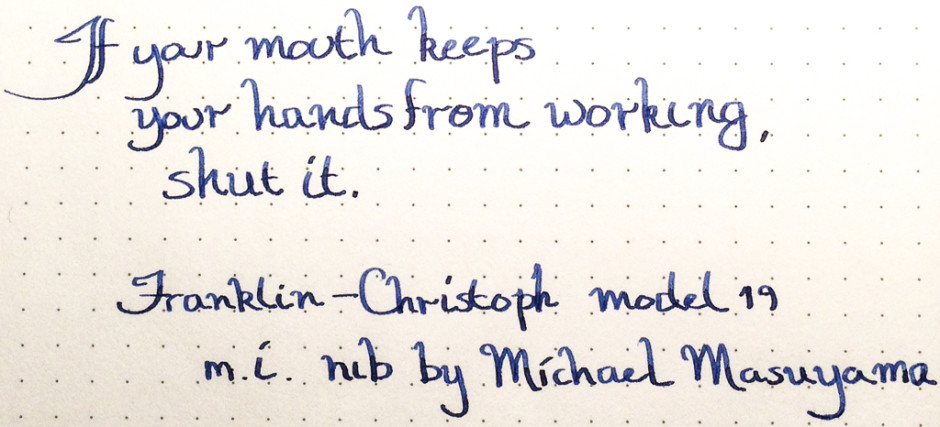 If your mouth keeps
your hands from working,
shut it.
Franklin-Christoph model 19
m.i. nib by Michael Masuyama